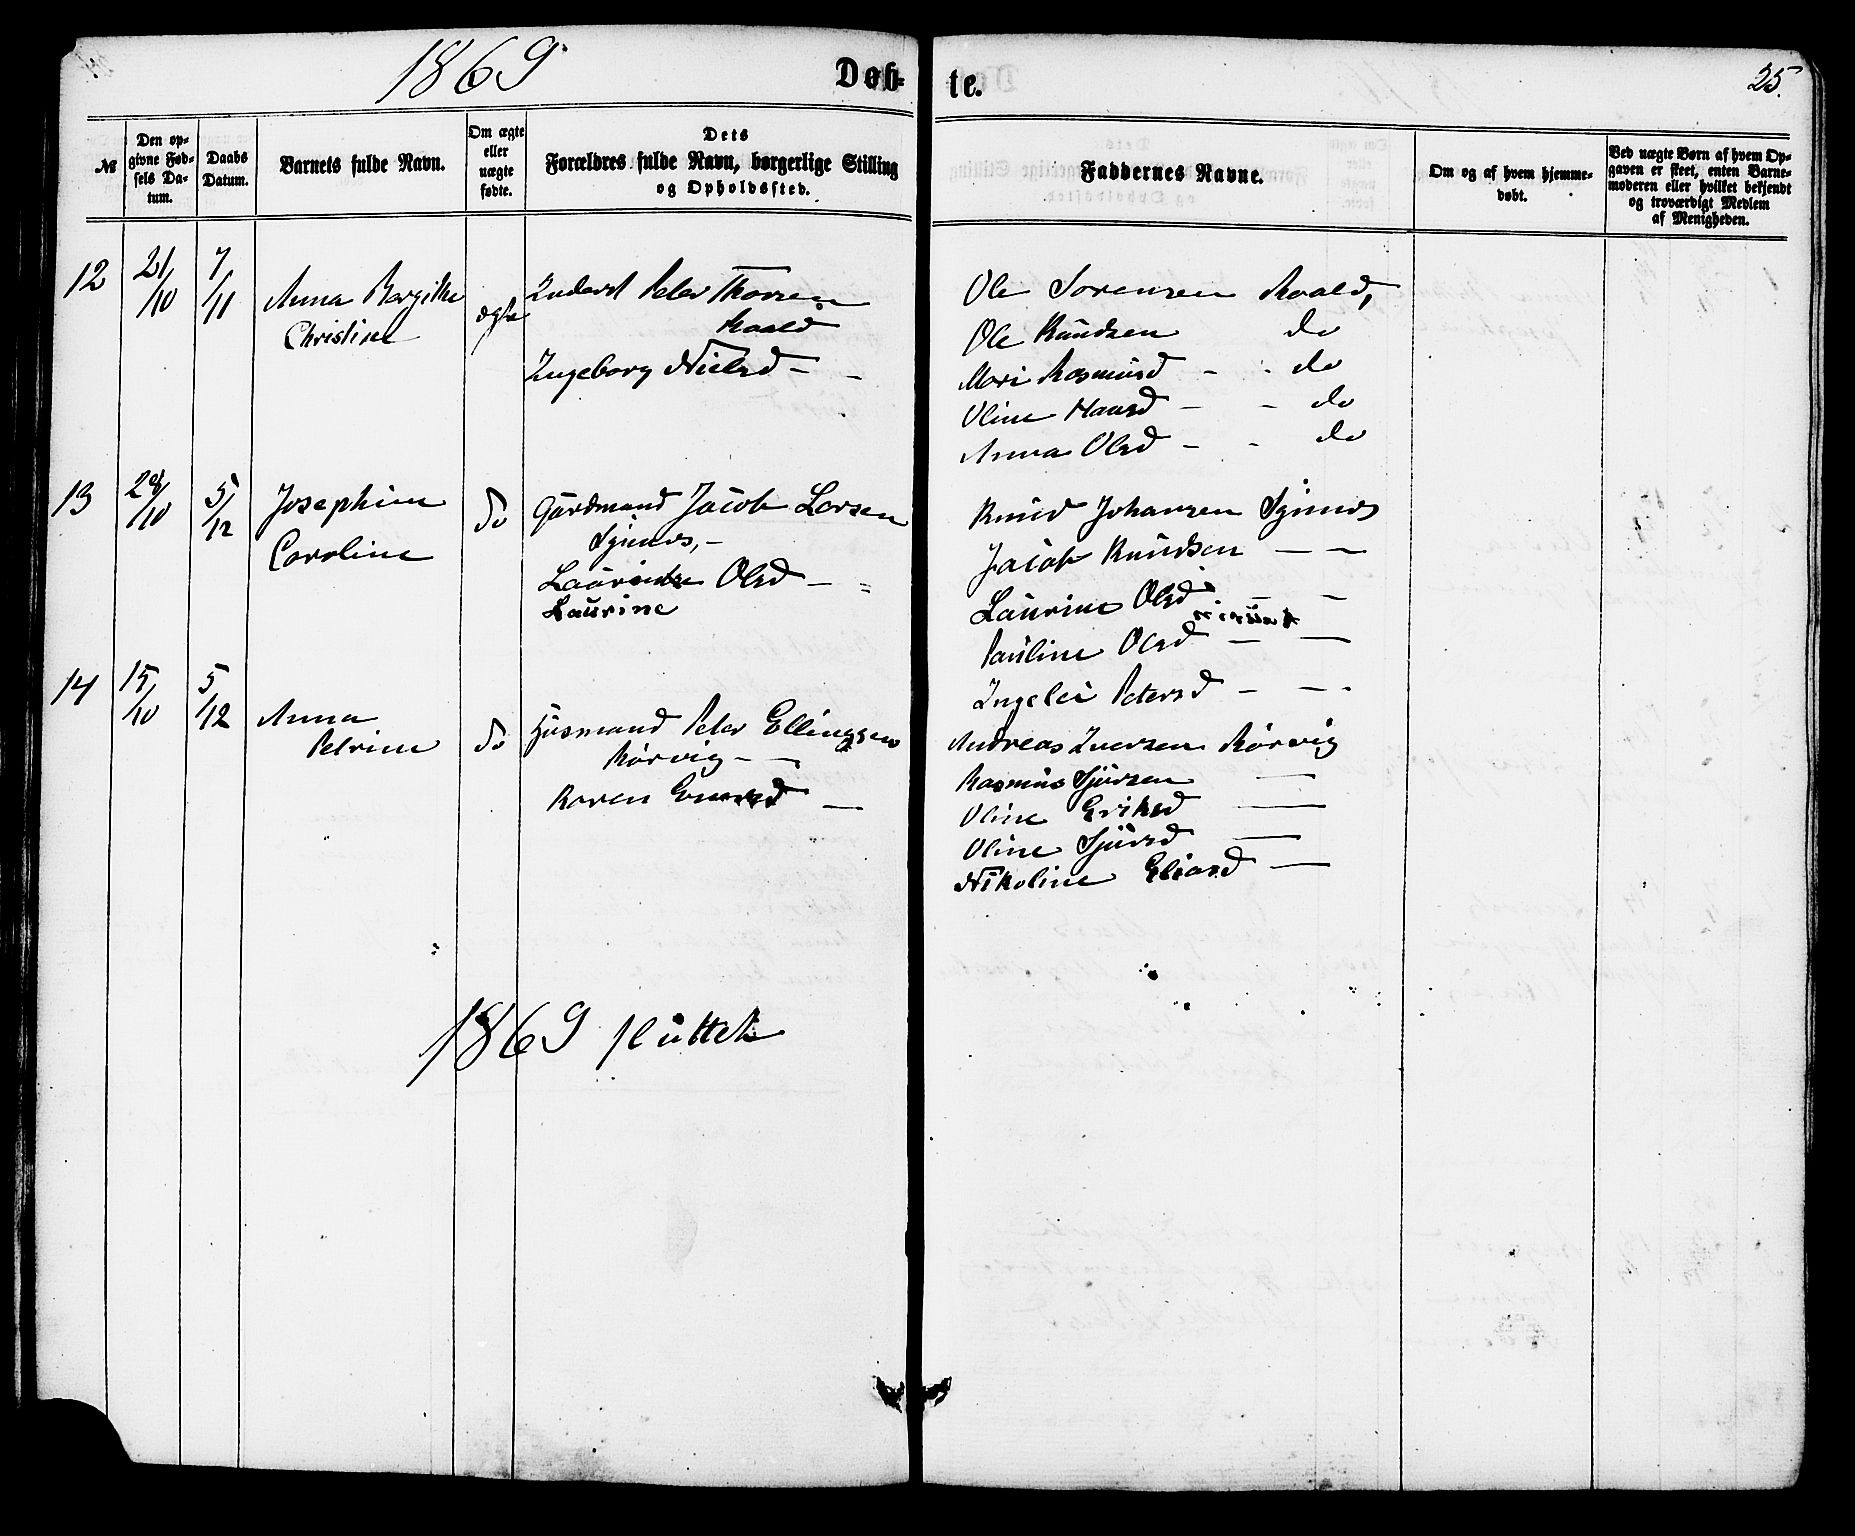 1869
Døb-
te.
25.
№
Den op-
givne Fød-
sels Da-
tum.
Daabs
Datum.
Barnets fulde Navn.
Om ægte
eller
uægte
fødte.
Dets
Forældres fulde Navn, borgerlige Stilling
og Opholdssted.
Faddernes Navne.
Om og af hvem hjemme-
døbt.
Ved uægte Børn af hvem Op-
gaven er skeet, enten Barne-
moderen eller hvilket bekjendt
og troværdigt Medlem
af Menigheden.
12
21/10
7/11
Anna Bergithe
Christine
ægte
Inderst Peter Thorsen
Roald
Ingeborg Nielsd - -
Ole Sorensen Roald,
Ole Knudsen do
Mari Rasmusd - - do
Oline Hansd - - do
Anna Olsd - - do
13
28/10
5/12
Josephine
Caroline
do
Gårdmand Jacob Larsen
Synnes, -
Olsd - -
Laurine
Knud Johansen Synnes
Jacob Knudsen - -
Laurine Olsd - -
Pauline Olsd - -
Ingelei Petersd - -
14
15/10
5/12
Anna
Petrine
do
Husmand Peter Ellingsen
Rørvig - -
Karen -
Andreas Iversen Rørvig
Rasmus Sjursen -
Oline Eriksd -
Oline Sjursd -
Nikoline Eliasd -
1869 sluttet